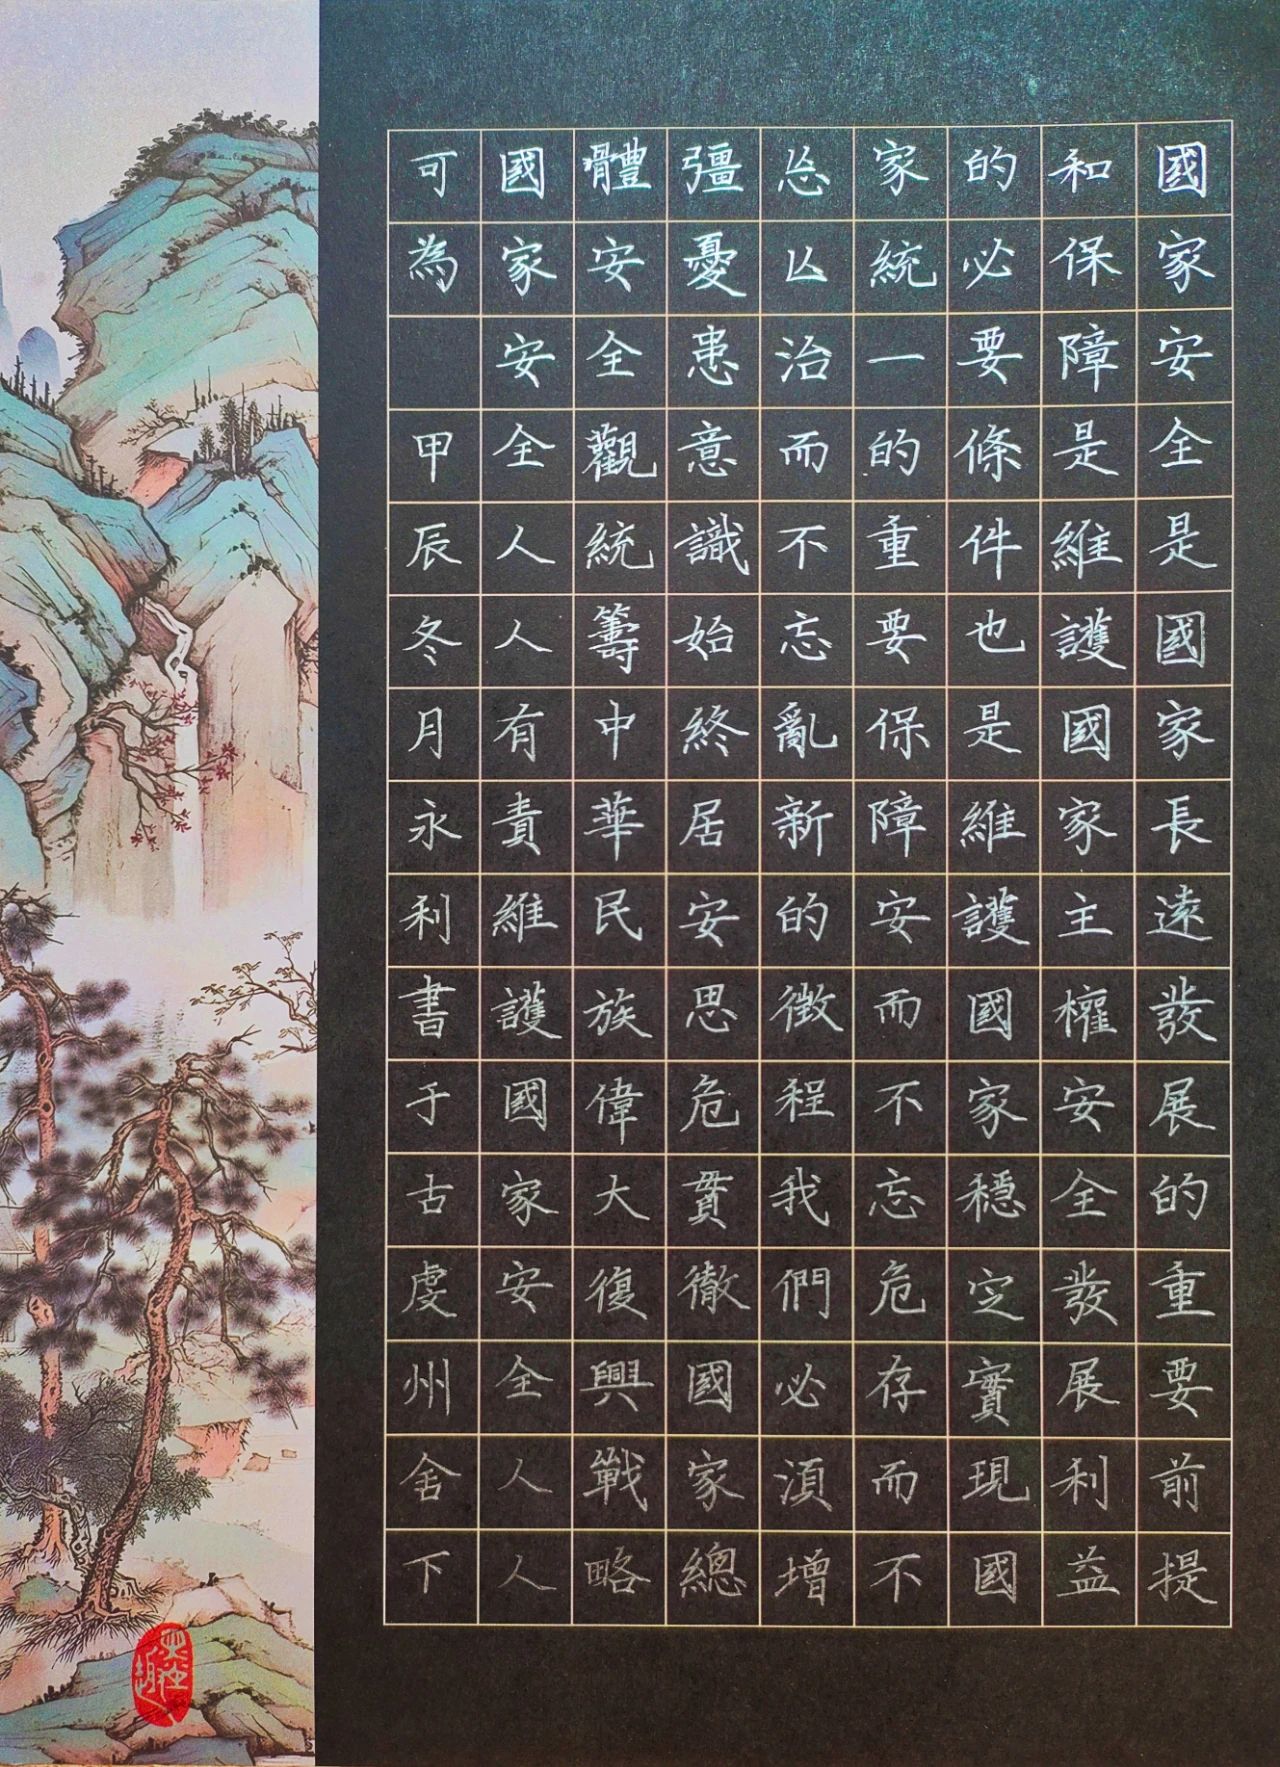 國家安全是國家長遠發展的重要前提
和保障是維護國家主權安全發展利益
的必要條件也是維護國家穩定實現國
家統一的重要保障安而不忘危存而不
㤀亾治而不忘亂新的徵程我們必湏增
彊憂患意識始終居安思危貫徹國家總
體安全觀統籌中華民族偉大復興戰略
國家安全人人有責維護國家安全人人
可為 甲辰冬月永利書于古虔州舍下